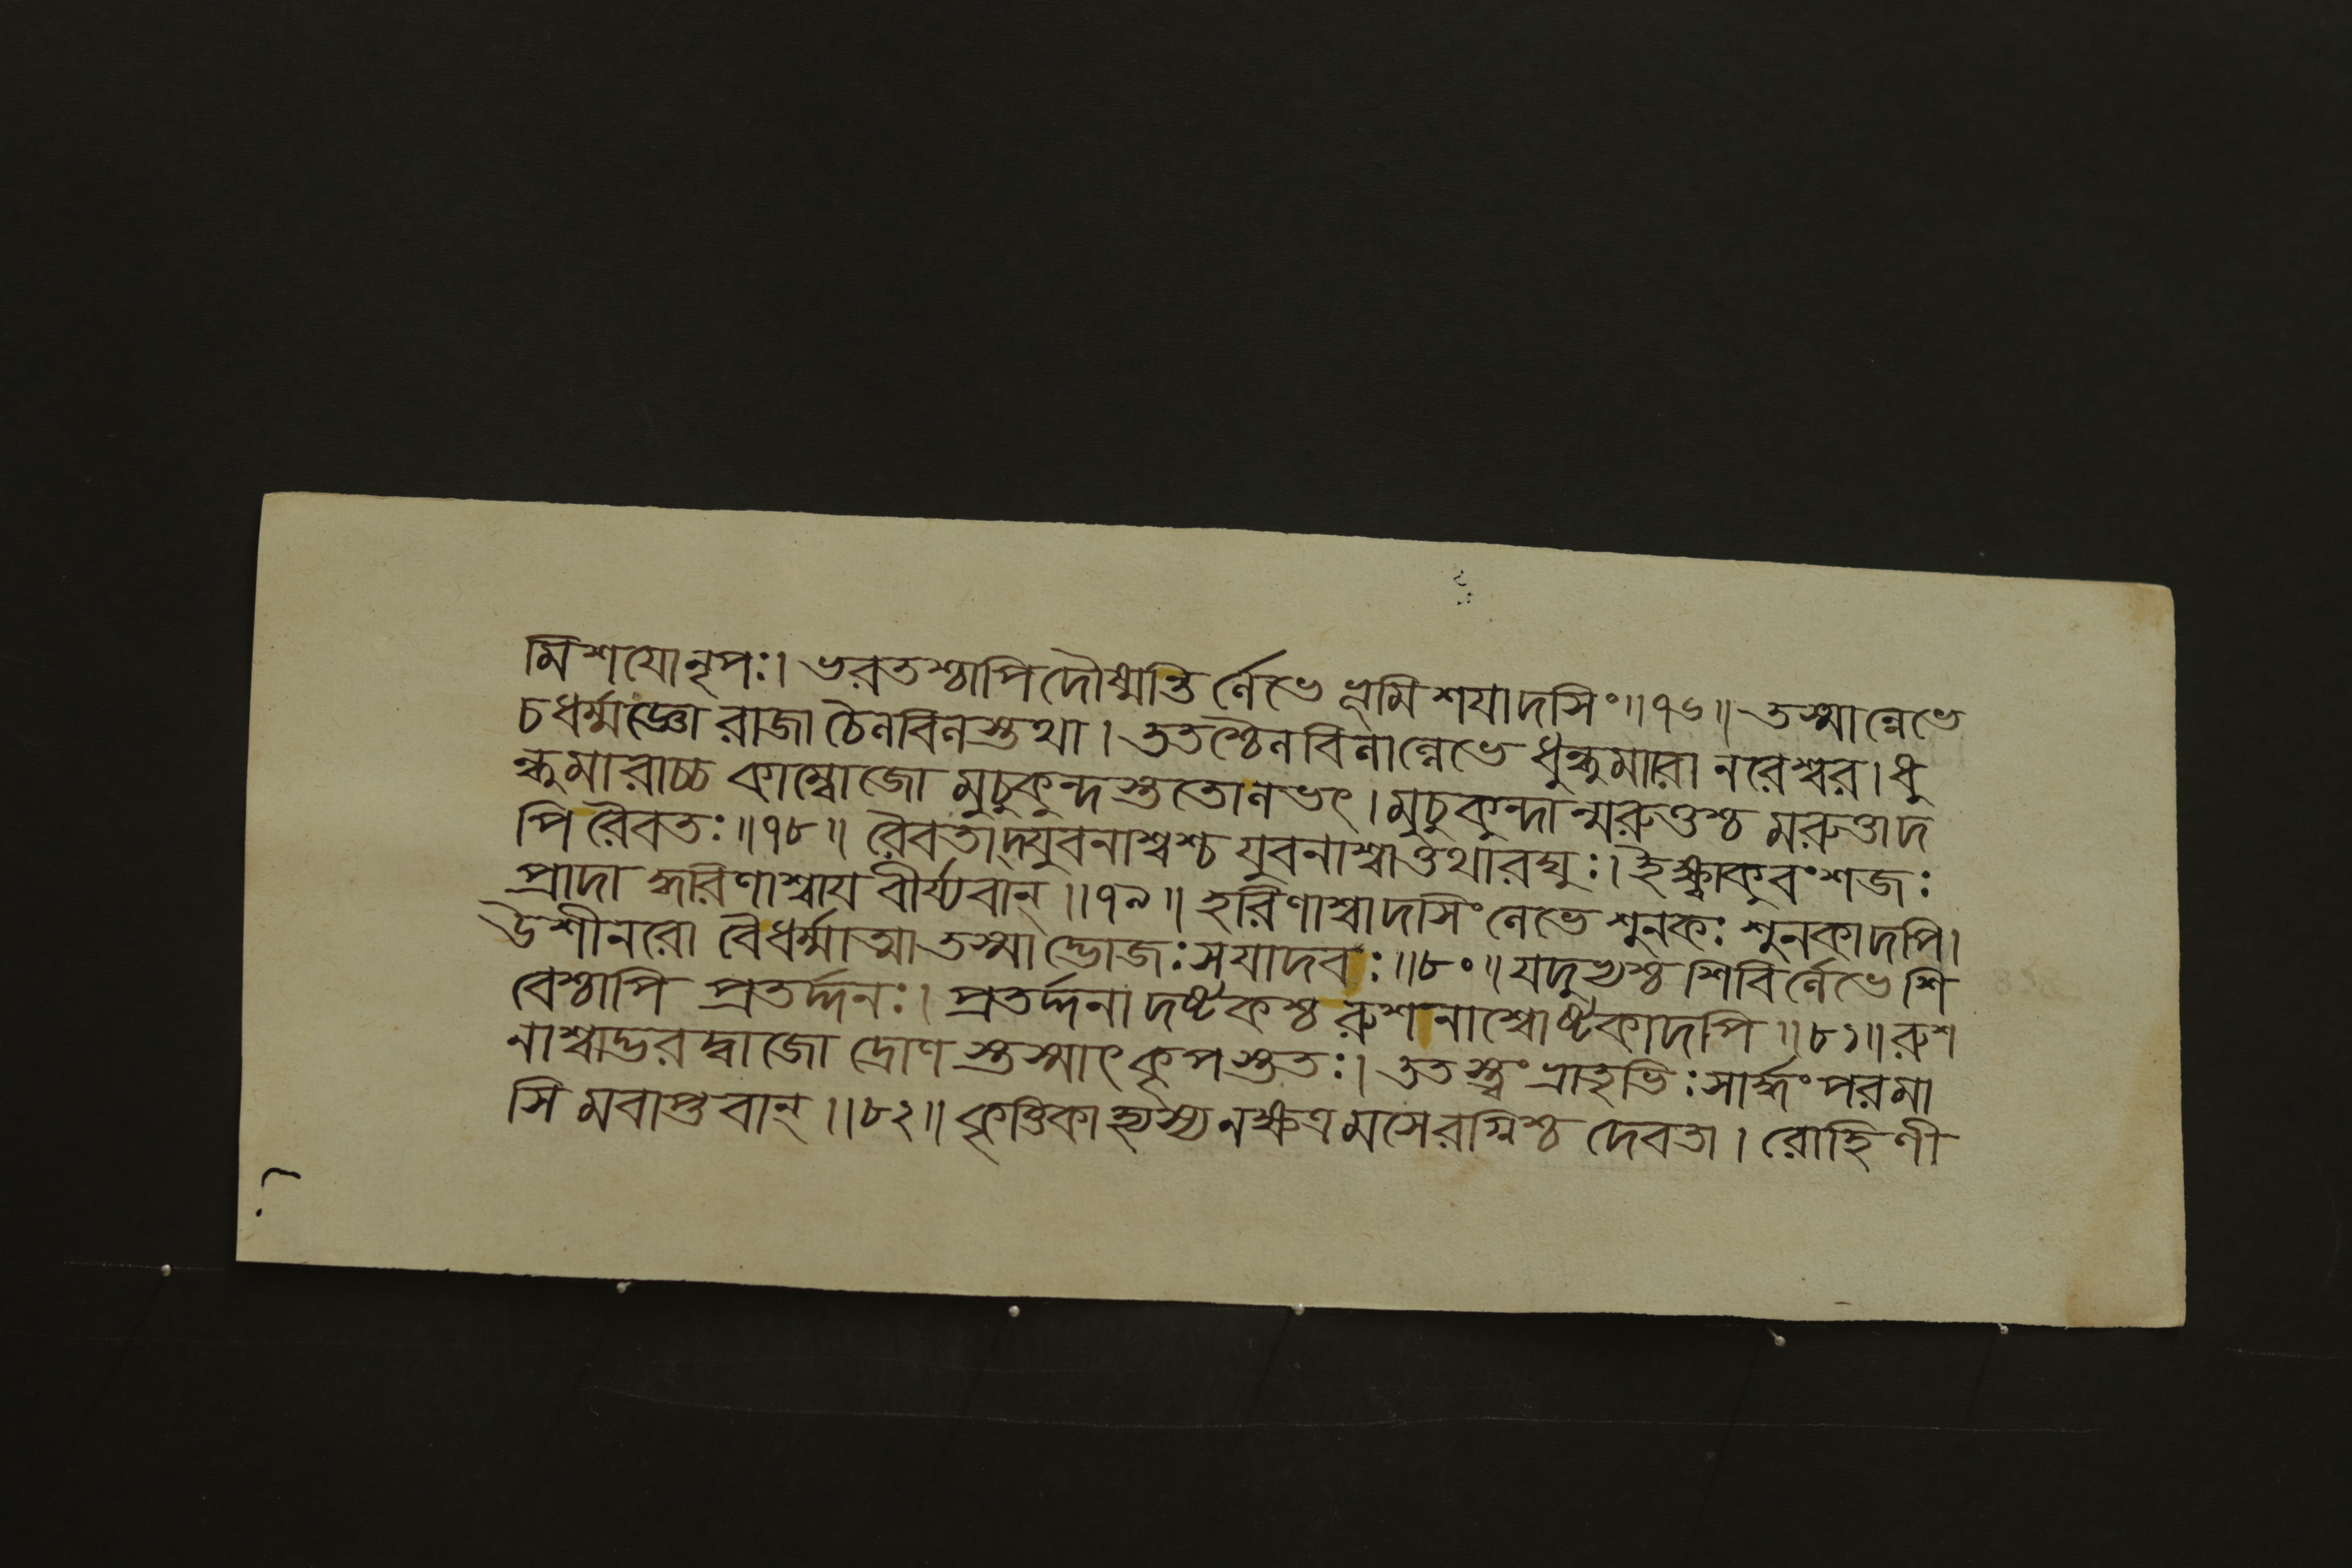 মিশযোনৃপঃ। ভরতশ্চাপিদৌষ্মন্তির্ণেভে ভূমিশযাদসিং॥৭৬॥ তস্মান্নেভে
চধর্ম্মজ্ঞো রাজা ঠৈনবিনস্তথা। ততশ্চৈনবিনান্নেভে ধুন্ধুমারা নরেশ্বর। ধু
ন্ধুমারাচ্চ কাম্বোজো মুচুকুন্দস্ততোনভৎ। মুচুকুন্দান্মরুত্তশ্চ মরুত্তাদ
পি রৈবতঃ॥৭৮॥ রৈবতাদ্যুবনাশ্বশ্চ যুবনাশ্বাত্তথারঘুঃ। ইক্ষ্বাকুবংশজঃ
প্রাদা দ্ধরিণাশ্বায বীর্য্যবান্॥৭৯॥ হরিণাশ্বাদসিং নেভে শুনকঃ শুনকাদপি।
উশীনরো বৈধর্ম্মাত্মা তস্মাদ্ভোজঃ সযাদবঃ॥৮০॥ যদুভ্যশ্চ শিবির্ণেভে শি
বেশ্চাপি প্রতর্দ্দনঃ। প্রতর্দ্দনাদষ্টকশ্চ রুশনাশ্বোষ্টকাদপি॥৮১॥ রুশ
নাশ্বাদ্ভরদ্বাজো দ্রোণস্তস্মাৎ কৃপস্ততঃ। ততস্ত্বং ভ্রাতৃভিঃ সার্দ্ধং পরমা
সি মবাপ্তবান্॥৮২॥ কৃত্তিকাস্তস্য নক্ষত্রমসেরগ্নিশ্চ দেবতা। রোহিণী